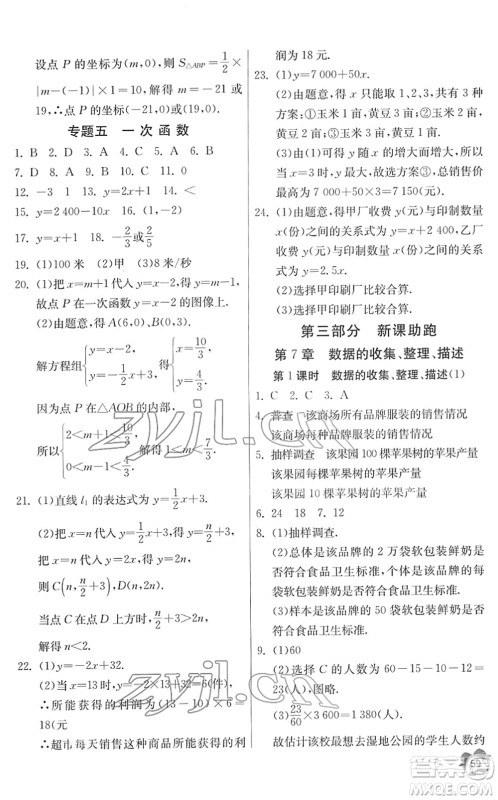 设点 P 的坐标为(m,0),则 S△ABP=1/2×
|m-(-1)|×1=10,解得 m=-21或
19,∴点 P 的坐标(-21,0)或(19,0).
专题五 一 次 函 数
1. B 2. D 3. A 4. C 5. B 6. D
7. D 8. A 9. B 10. A 11. B
12. -3 1 13. y=2x+1 14. <
15. y=2 400-10x 16. (1,-2)
17. y=x+1 18. -2/3或2/5
19. (1)100米 (2)甲 (3)8米/秒
20. (1)把 x=m+1代入 y=x-2,得 y=m-1,
故点 P 在一次函数 y=x-2的图像上.
(2)由题意,得 A(6,0)、B(0,3).
解方程组{y=x-2, y=-1/2x+3,得{x=10/3, y=4/3.
因为点 P 在△AOB 的内部,
所以{2<m+1<10/3, 0<m-1<4/3,解得 1<m<7/3.
21. (1)直线 l₁ 的表达式为 y=1/2x+3.
(2)把 x=n 代入 y=1/2x+3,得 y=n/2+3,
把 x=n 代入 y=2x,得 y=2n,
则 C(n,n/2+3),D(n,2n).
当点 C 在点 D 上方时,n/2+3>2n,
解得 n<2.
22. (1)y=-2x+32.
(2)当 x=13时,y=-2×13+32=6(件)
∴所能获得的利润(13-10)×6=
18(元
∴超市每天销售这种商品所能获得的利
润为18元.
23. (1)y=7 000+50x.
(2)由题意,得 x 可能取1、2、3,共有3种
方案:①玉米1亩,黄豆3亩;②玉米2亩,
黄豆2亩;③玉米3亩,黄豆1亩.
(3)由题意知,y 随 x 的增大而增大,所以
当 x=3时,y 最大,故选方案③,总收益最
大为7 000+50×3=7 150(元).
24. (1)由题意,得甲厂收费 y 与印制数量
x(份)之间的关系式为 y=x+2 400,乙厂
收费 y 与印制数量 x(份)之间的关系式
为 y=2.5x.
(2)选择甲印刷厂比较合算.
(3)选择甲印刷厂比较合算.
第三部分 新课助跑
第7章 数据的收集、整理、描述
第1课时 数据的收集、整理、描述(1)
1. C 2. C 3. A
4. 普查 该商场所有品牌服装的销售情况
该商场每种品牌服装的销售情况
5. 抽样调查 该果园100棵苹果树的苹果产量
该果园每棵苹果树的苹果产量
该果园10棵苹果树的苹果产量
6. 24 18 7. 12
8. (1)抽样调查.
(2)总体是该品牌的2万袋软包装鲜奶是
否符合食品卫生标准,个体是该品牌的
每袋软包装鲜奶是否符合食品卫生标准.
(3)样本是该品牌的50袋软包装鲜奶是
否符合食品卫生标准.
9. (1)60
(2)选择 C 的人数为60-15-10-12=
23(人),图略.
(3)23/60×3 600=1 380(人),
故估计该校最想去湿地公园的学生人数约
59
zyjl.cn
zyjl.cn
答案圈